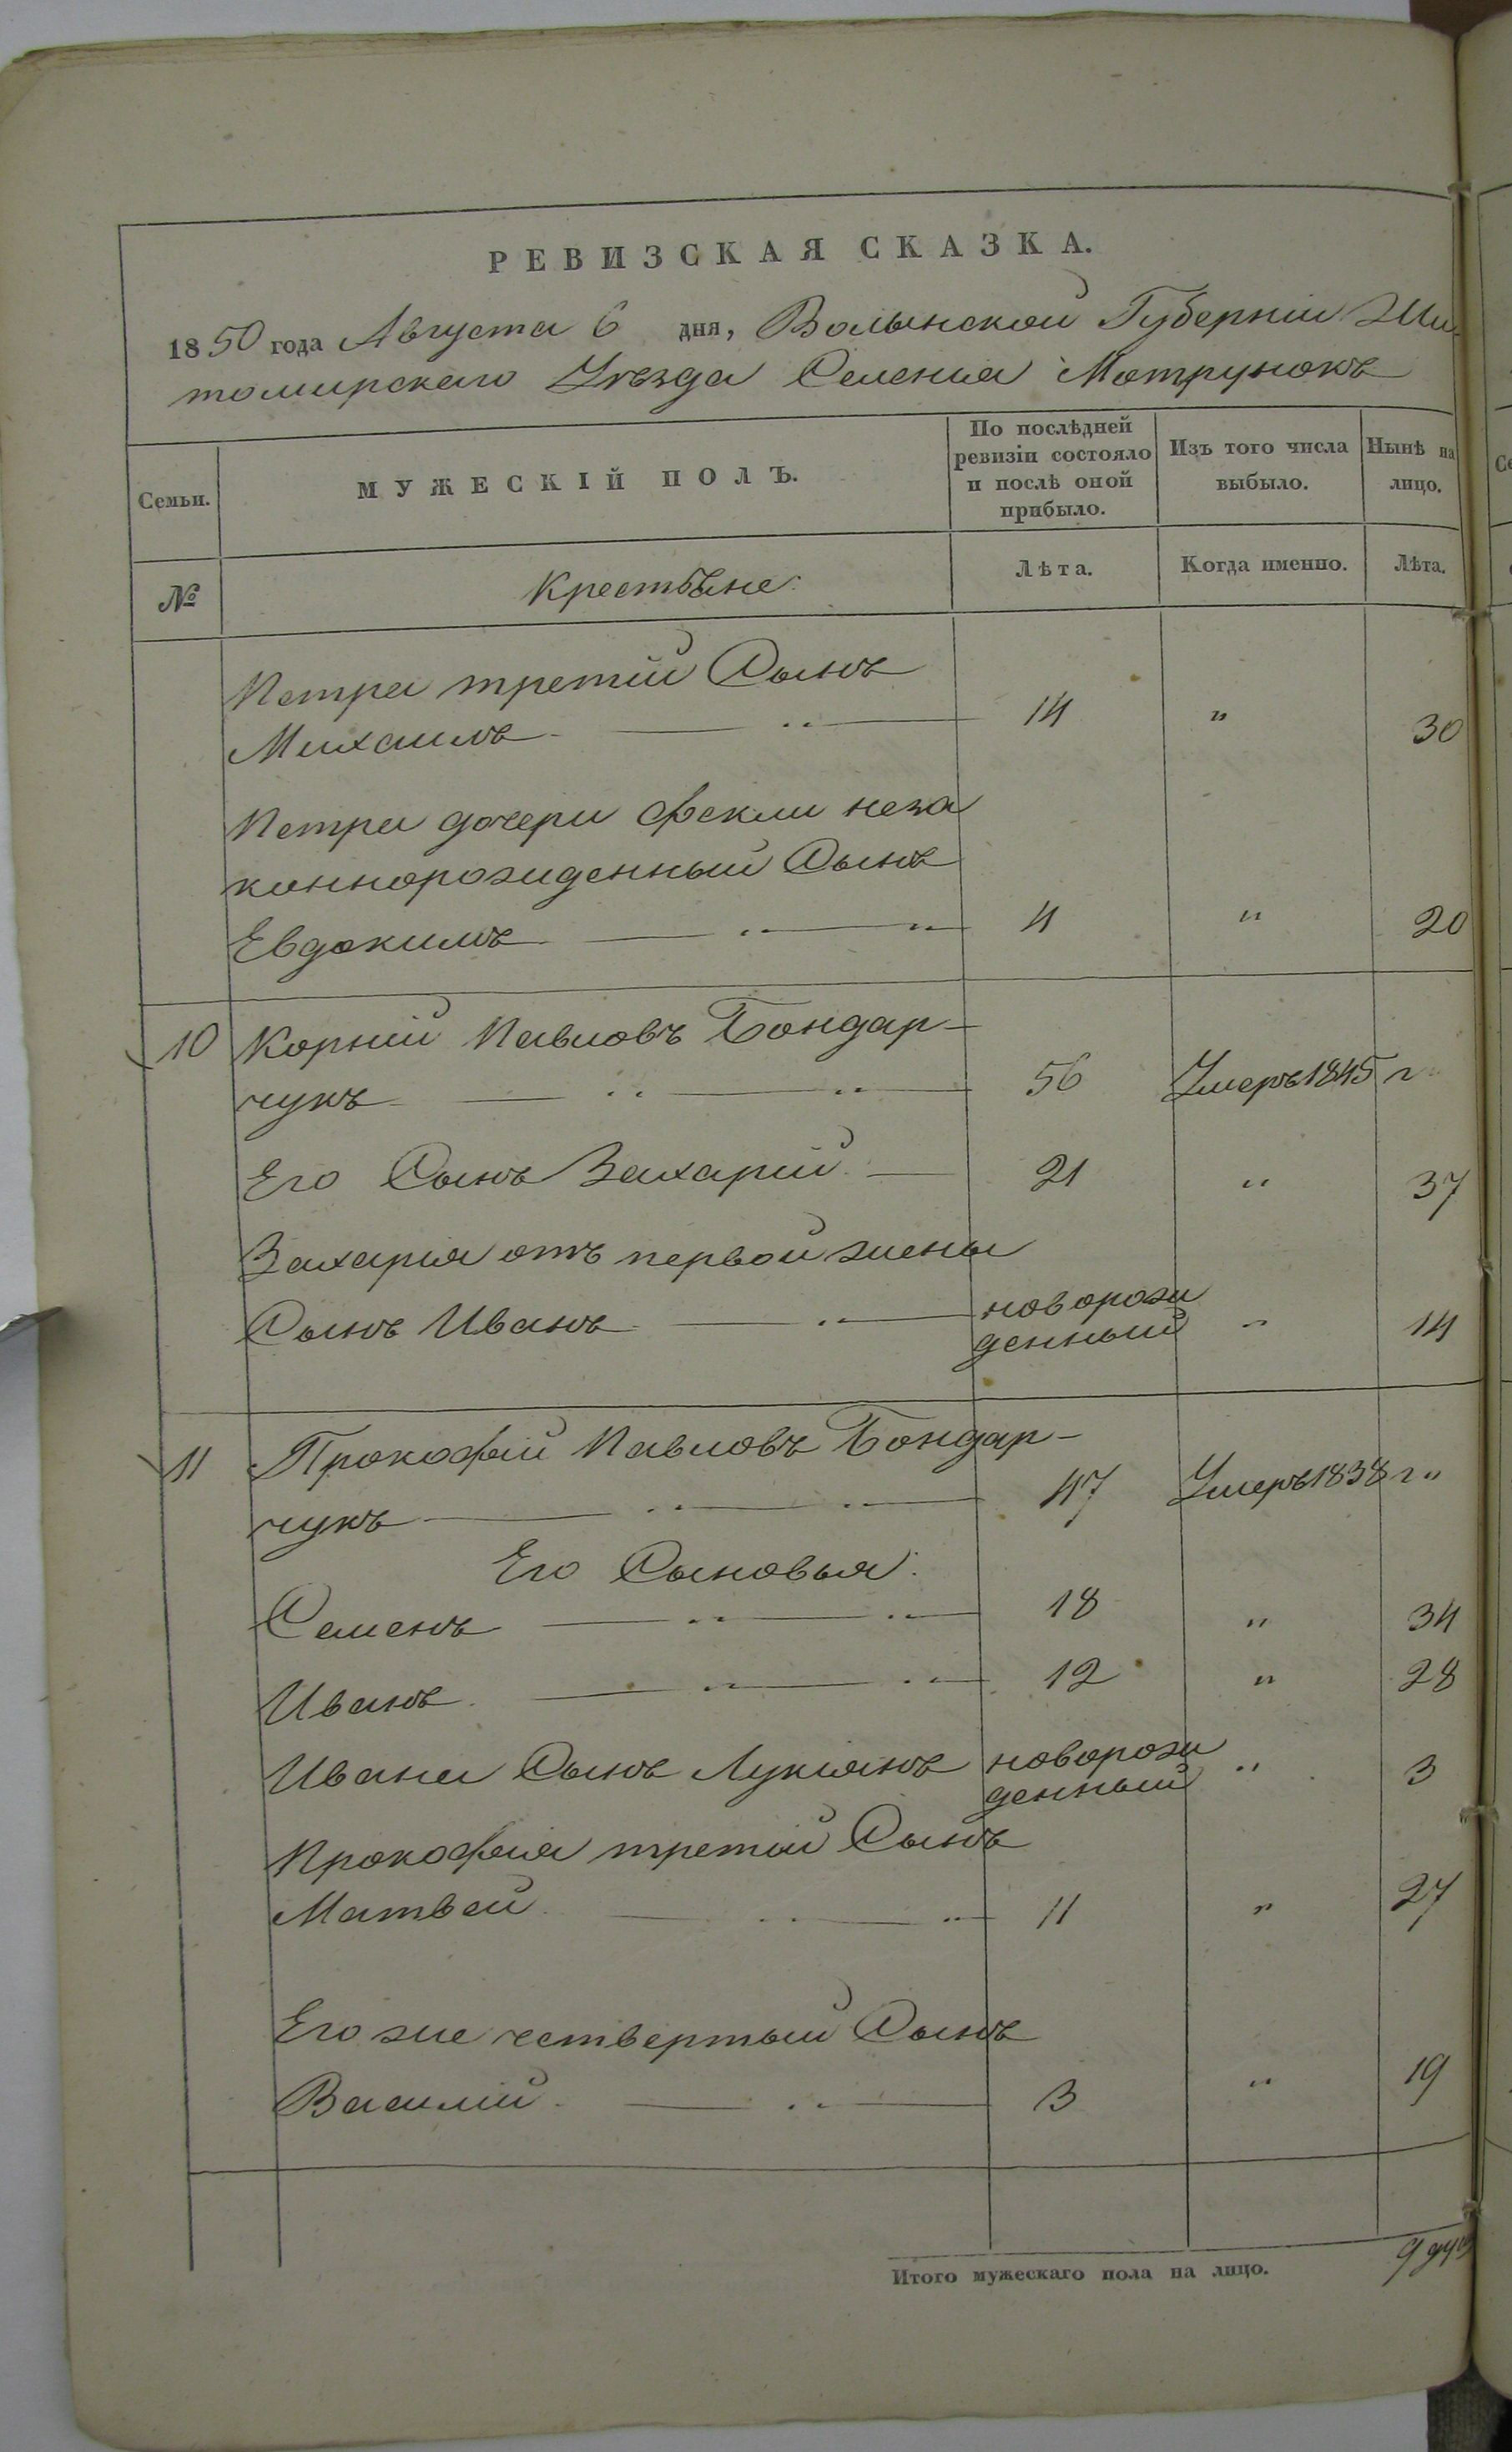 РЕВИЗСКАЯ СКАЗКА.
1850 года Августа 6 дня, Волынской Губерніи Жи
томирскаго Уѣзда Селенія Мотрунокъ
Семьи. МУЖЕСКІЙ ПОЛЪ. По послѣдней ревизіи состояло и послѣ оной прибыло. Изъ того числа выбыло. Нынѣ на лицо.
№ Крестьяне. Лѣта. Когда именно. Лѣта.
Петра третій Сынъ
Михаилъ 14 " 30
Петра дочери Феклы неза
коннорожденный Сынъ
Евдокимъ 4 " 20
10 Корній Павловъ Бондар-
чукъ 56 Умеръ 1845 г
Его Сынъ Захарій 21 " 37
Захарія отъ первой жены
Сынъ Иванъ новорож
денный " 14
11 Прокофій Павловъ Бондар-
чукъ 47 Умеръ 1838 г "
Его Сыновья:
Семенъ 18 " 34
Иванъ 12 " 28
Ивана Сынъ Лукіанъ новорож
денный " 3
Прокофія третій Сынъ
Матвей 11 " 27
Его же четвертый Сынъ
Василій 3 " 19
Итого мужескаго пола на лицо. 9